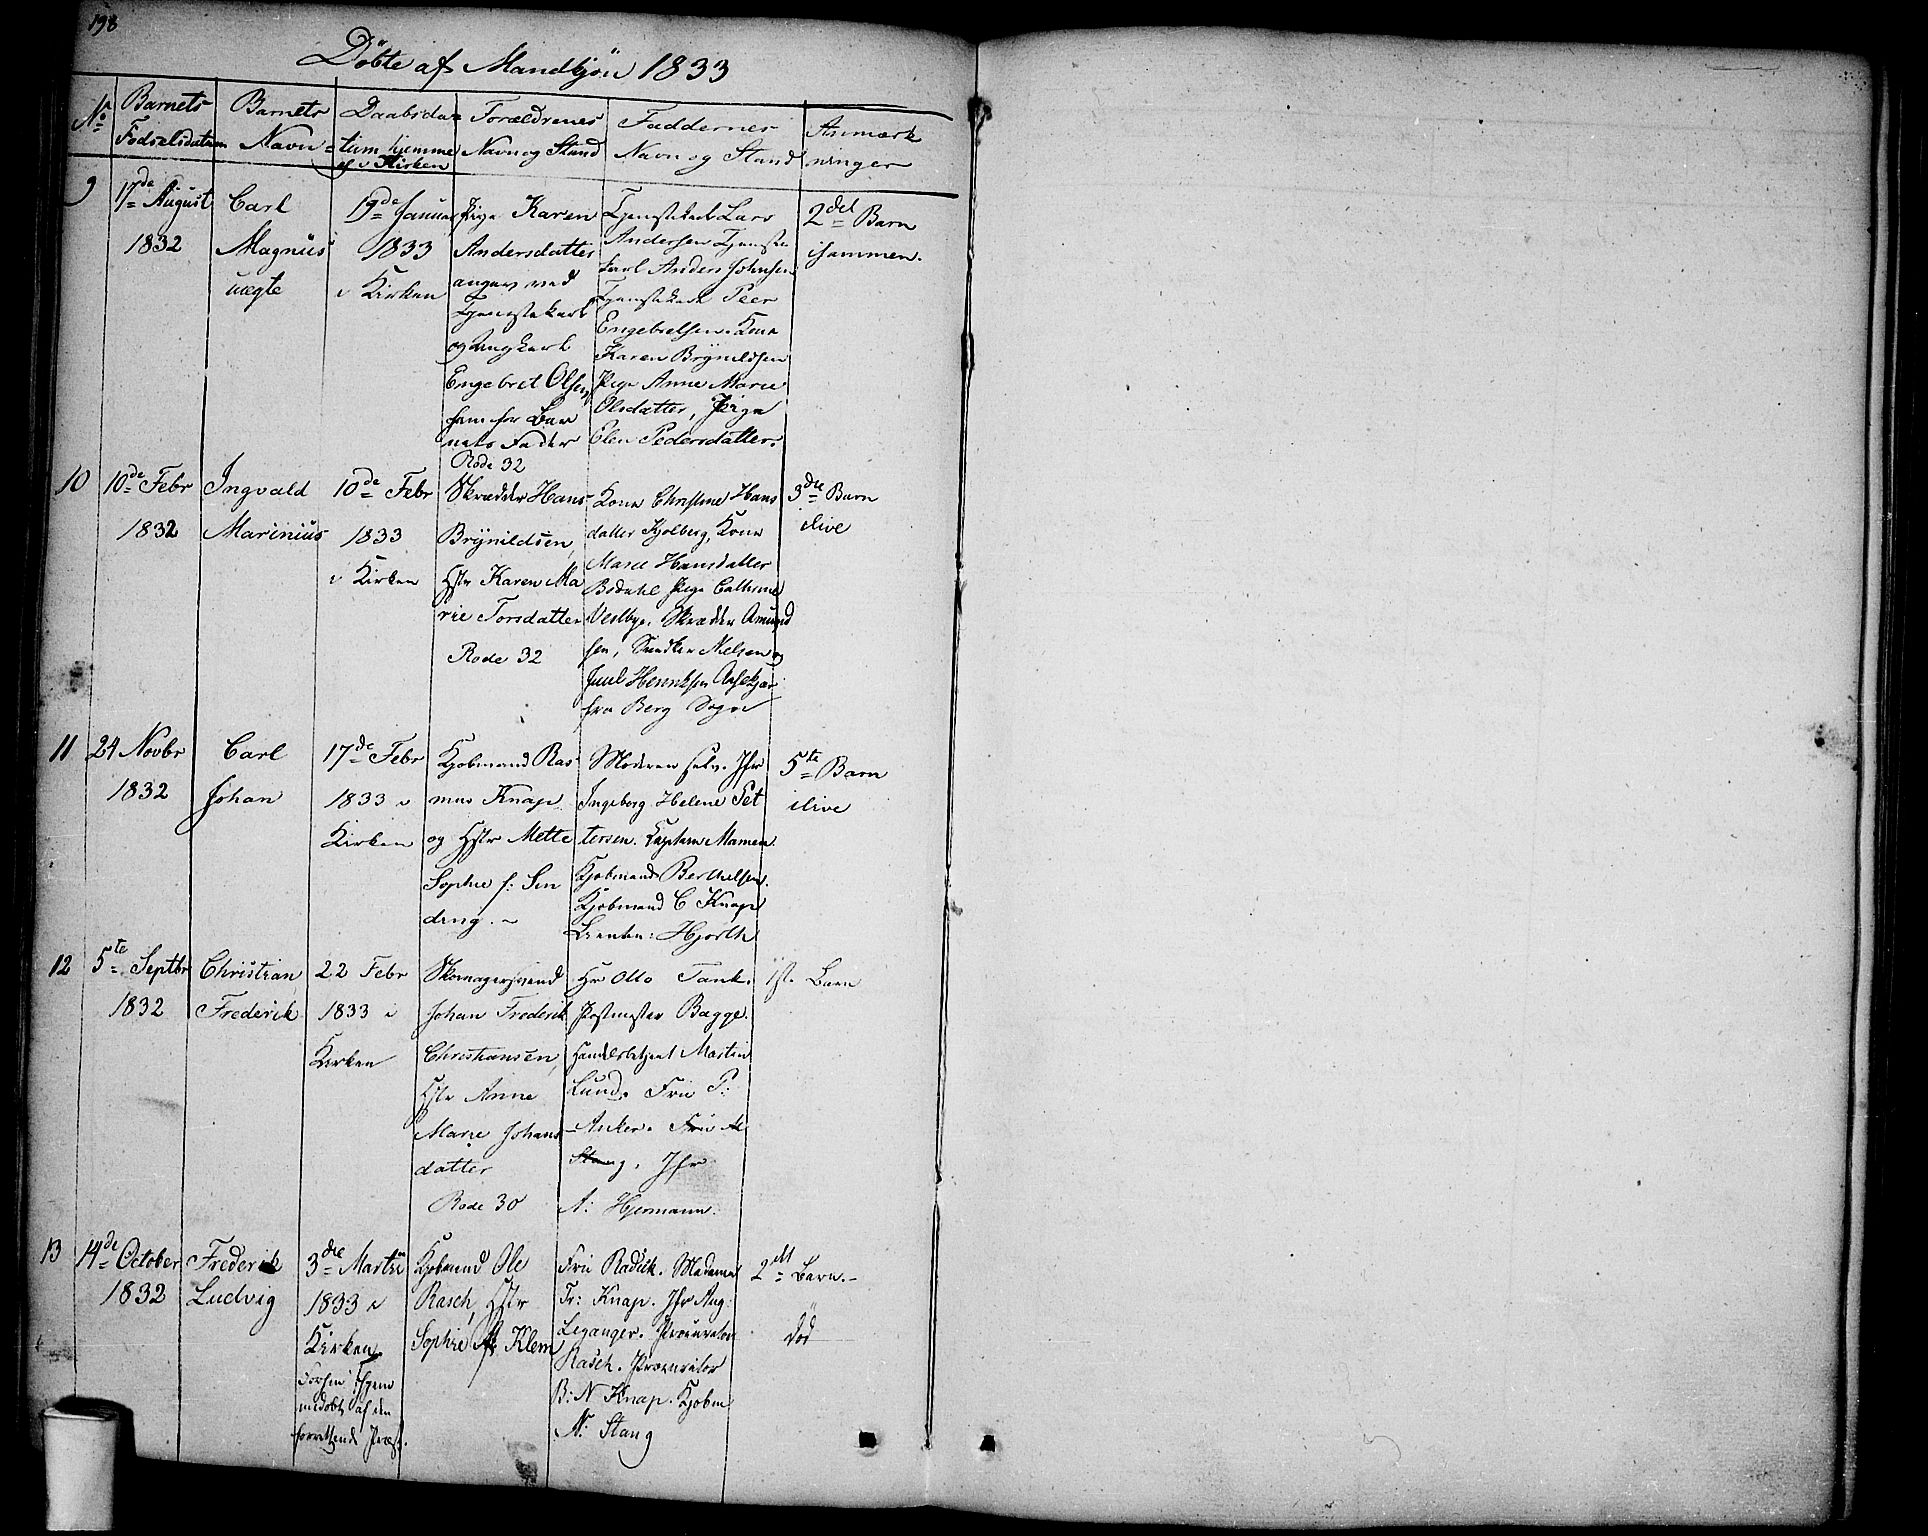 198
Döbte af Mandkjön 1833
No
Barnets Födselsdatum
Barnets Navn
Daabsdatum hjemme el. i Kirken
Forældrenes Navn og Stand
Faddernes Navn og Stand
Anmærkninger
9
17de August
1832
Carl
Magnus
uægte
19de Januar
1833
i Kirken
Pige Karen
Andersdatter
angav ved
Tjenestekarl
og Ungkarl
Engebret Olsen
som for Bar
nets Fader
Rode 32
Tjenstekarl Lars
Andersen Tjenste
karl Anders Johnsen
Tjenstekarl Peer
Engebretsen. Kone
Karen Brynildsen
Pige Anne Marie
Olsdatter, Pige
Elen Pedersdatter.
2det Barn
isammen.
10
10de Febr
1832
Ingvald
Marinius
10de Febr
1833
i Kirken
Skrædder Hans
Brynildsen,
Hstr Karen Ma
rie Torsdatter
Rode 32
Kone Christine Hans
datter Kjolberg, Kone
Marie Hansdatter
Bödahl Pige Cathrine
Vestbye. Skrædder Amund
sen, Snedker Nielsen og
Juul Henriksen
fra Berg Sogn
3die Barn
ilive
11
24 Novbr
1832
Carl
Johan
17de Febr
1833 i
Kirken
Kjobmand Ras
mus Knap
og Hstr Mette
Sophie f: Sin
ding. -
Moderen selv. Jfr
Ingeborg Helene Pet
tersen. Captain Mamen
Kjobmand Berthelsen.
Kjobmand C Knap
Hjorth
5te Barn
ilive
12
5te Septbr
1832
Christian
Frederik
22 Febr
1833 i
Kirken
Skomagersvend
Johan Frederik
Christiansen,
Hstr Anne
Marie Johans
datter
Rode 30
Hr Otto Tank.
Postmester Bagge.
Handelsbetjent Martin
Lund. Fru P:
Anker. Fru M
Stang. Jfr
A: Hjermann.
1st. Barn
13
14de October
1832
Frederik
Ludvig
3die Martii
1833 i
Kirken
forhen hjem
medöbt af den
forrettende Præst.
Kjobmand Ole
Rasch, Hstr
Sophie f: Klem
Fru Radick. Madame
Fr: Knap. Jfr Aug:
Leganger. Procurator
Rasch. Procurator
B: N Knap. Kjobm
N: Stang
2det Barn. -
död